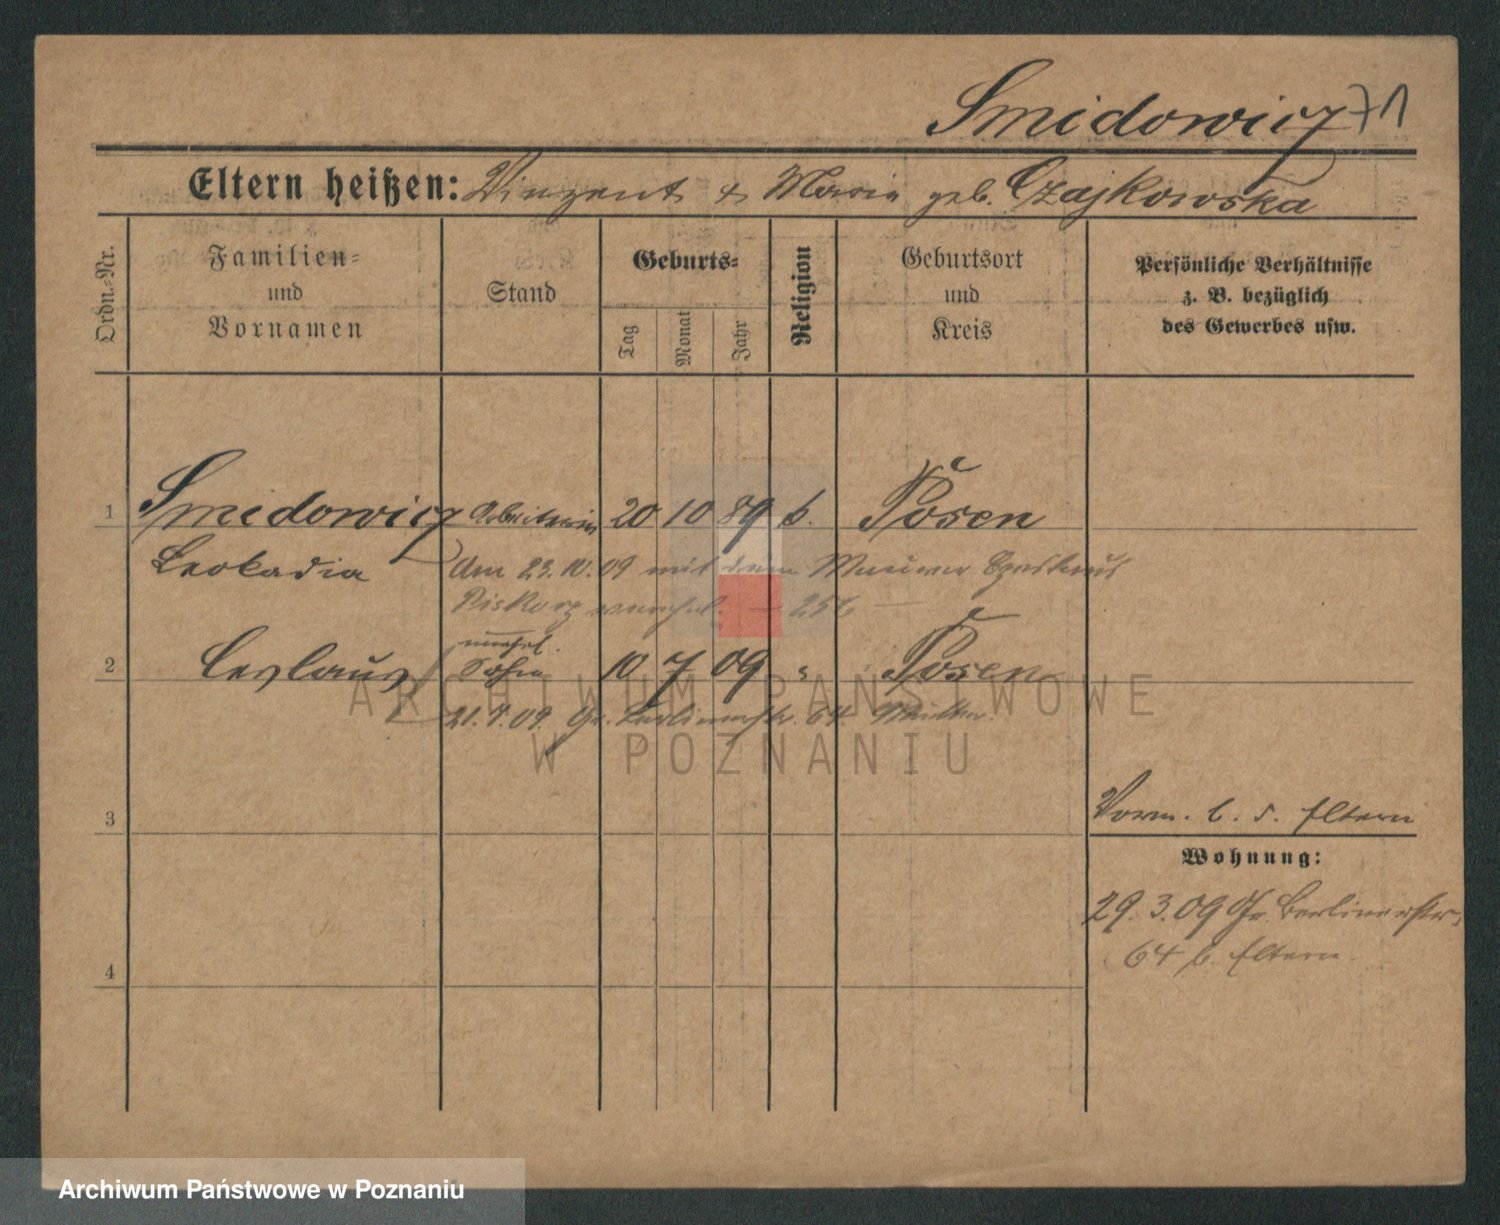 Smidowicz 71
Eltern heißen: Vinzent & Maria geb. Czajkowska
Ordn.-Nr.
Familien- und Vornamen
Stand
Geburts-
Tag
Monat
Jahr
Religion
Geburtsort und Kreis
Persönliche Verhältnisse z. B. bezüglich des Gewerbes usw.
1 Smidowicz Arbeiterin 20 10 89 k. Posen
Leokadia Am 23.10.09 mit dem Maurer
Piskorz verehel. — 256 —
unehel.
2 Ceslaus Sohn 10 7 09 " Posen
21.7.09 Gr. Berlinerstr. 64 Mutter.
3
Vorm. b. d. Eltern
Wohnung:
29.3.09 Gr. Berlinerstr.
64 b. Eltern.
4
ARCHIWUM PAŃSTWOWE
W POZNANIU
Archiwum Państwowe w Poznaniu